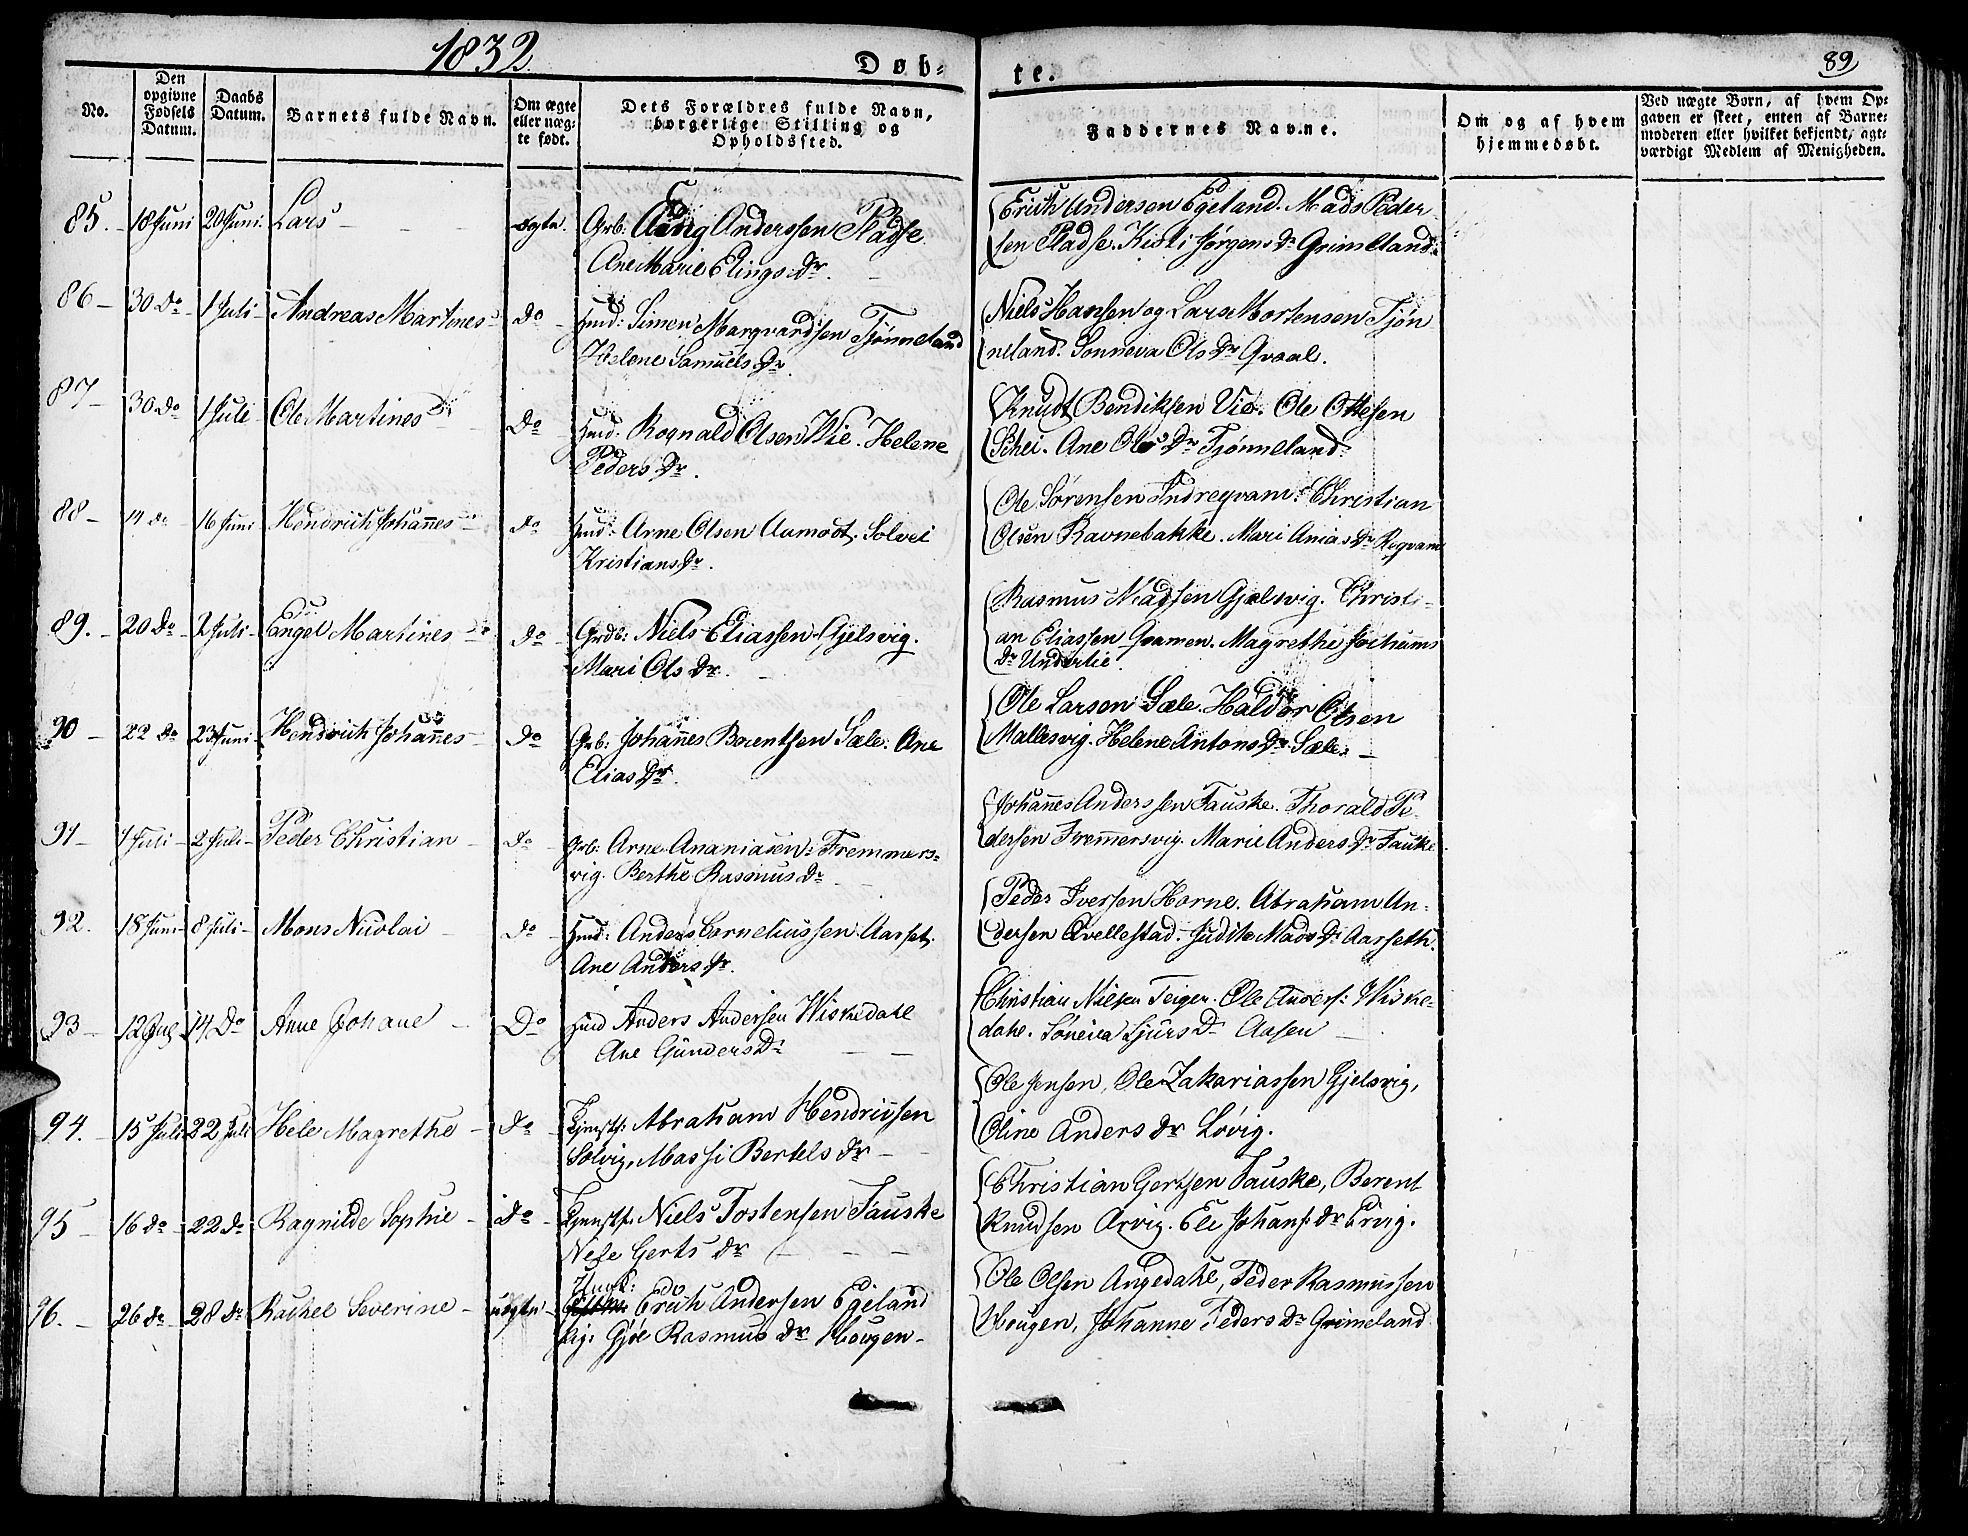 1832
Døb-
te.
89
No.
Den opgivne Fødsels Datum.
Daabs Datum.
Barnets fulde Navn.
Om ægte eller uæg-te født.
Dets Forældres fulde Navn, borgerlige Stilling og Opholdssted.
Faddernes Navne.
Om og af hvem hjemmedøbt.
Ved uægte Born, af hvem Op-gaven er skeet, enten af Barne-moderen eller hvilket bekjendt, agt-værdigt Medlem af Menigheden.
85. 18 Juni 20 Juni. Lars - - - ægte. Grb: Andersen Pladse.
Ane Marie Elings Dr. -
Erich Andersen Egeland. Mads Peder-
sen Pladse. Kisti Jørgens Dr Grimeland.
86 - 30 Do 1 Juli - Andreas Martenes - Do - Hmd: Simen Marqvardsen Tjønneland
Helene Samuels Dr.
Niels Hansen og Lars Mortensen Tjøn
neland. Sonneva Ols Dr Qvaal.
87 - 30 Do 1 Juli Ole Martines - Do - Hmd: Rognald Olsen Wie. Helene
Peders Dr.
Knudt Bendiksen Vie. Ole Ottesen
Schei. Ane Ols Dr Tjønneland.
88 - 14 do 16 Juni Hendrich Johannes - do Hmd: Arne Olsen Aamodt. Solvei
Kristians Dr.
Ole Sørensen Indreqvam. Christian
Olsen Ravnebakke. Mari Anias Dr
89. - 20 Do 2 Juli - Engel Martines - Do - Grdb: Niels Eliassen Gjelsvig.
Mari Ols Dr. -
Rasmus Madsen Gjelsvig. Christi-
an Eliassen Qvamen. Magrethe Jochums
Dr Underlie
90 - 22 Do 23 Juni - Hendrich Johannes - Do - Grb: Johannes Berentsen Sæle. Ane
Elias Dr.
Ole Larsen Sæle. Haldor Olsen
Mallesvig. Helene Antons Dr Sæle. -
91 - 1 Juli - 2 Juli - Peder Christian - Do - Grb: Arne Ananiasen Fremmers-
vig. Berthe Rasmus Dr - -
Johannes Anderssen Fauske. Thorald Pe-
dersen Fremmersvig. Marie Anders Dr Fauske.
92. 18 Juni 8 Juli - Mons Nicolai - do - Hmd: Anders Corneliussen Aarset.
Ane Anders Dr.
Peder Iversen Horne. Abraham An-
dersen Qvellestad. Judite Mads Dr Aarseth.
93 - 12 Jul 14 Do Anne Johane - Do - Hmd Anders Andersen Wiskedahl
Ane Gunders Dr - -
Christian Nielsen Teigen. Ole Anders: Wiske-
dahl. Søneva Sjurs Dr Aasen -
94. - 15 Juli 22 Juli Hele Magrethe - Do - Abraham Hendricsen
Solvig, Massi Bertels Dr -
Ole Jensen, Ole Zakariassen Gjelsvig,
Oline Anders Dr Løvig.
95 - 16 do 22 do Ragnilde Sophie - Do - Niels Tostensen Fauske
Nese Gerts Dr - - -
Christian Gertsen Fauske, Berent
Knudsen Arvig. Eli Johans: Dr Ervig.
96. - 26 do 28 do Rachel Severine - uægte - Ungk: Erich Andersen Egeland
Pig: Gjøe Rasmus Dr Hougen -
Ole Olsen Angedahl, Peder Rasmussen
Hougen, Johanne Peders Dr Grimeland